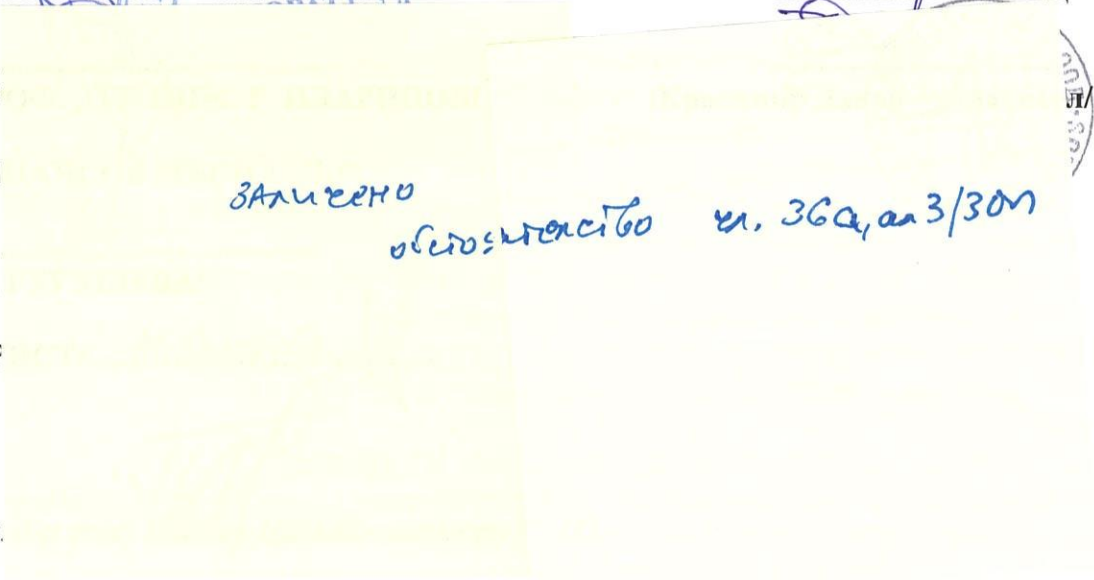 ЗАЛИЧЕНО
обстоятелство чл. 36а, ал 3/ЗОП